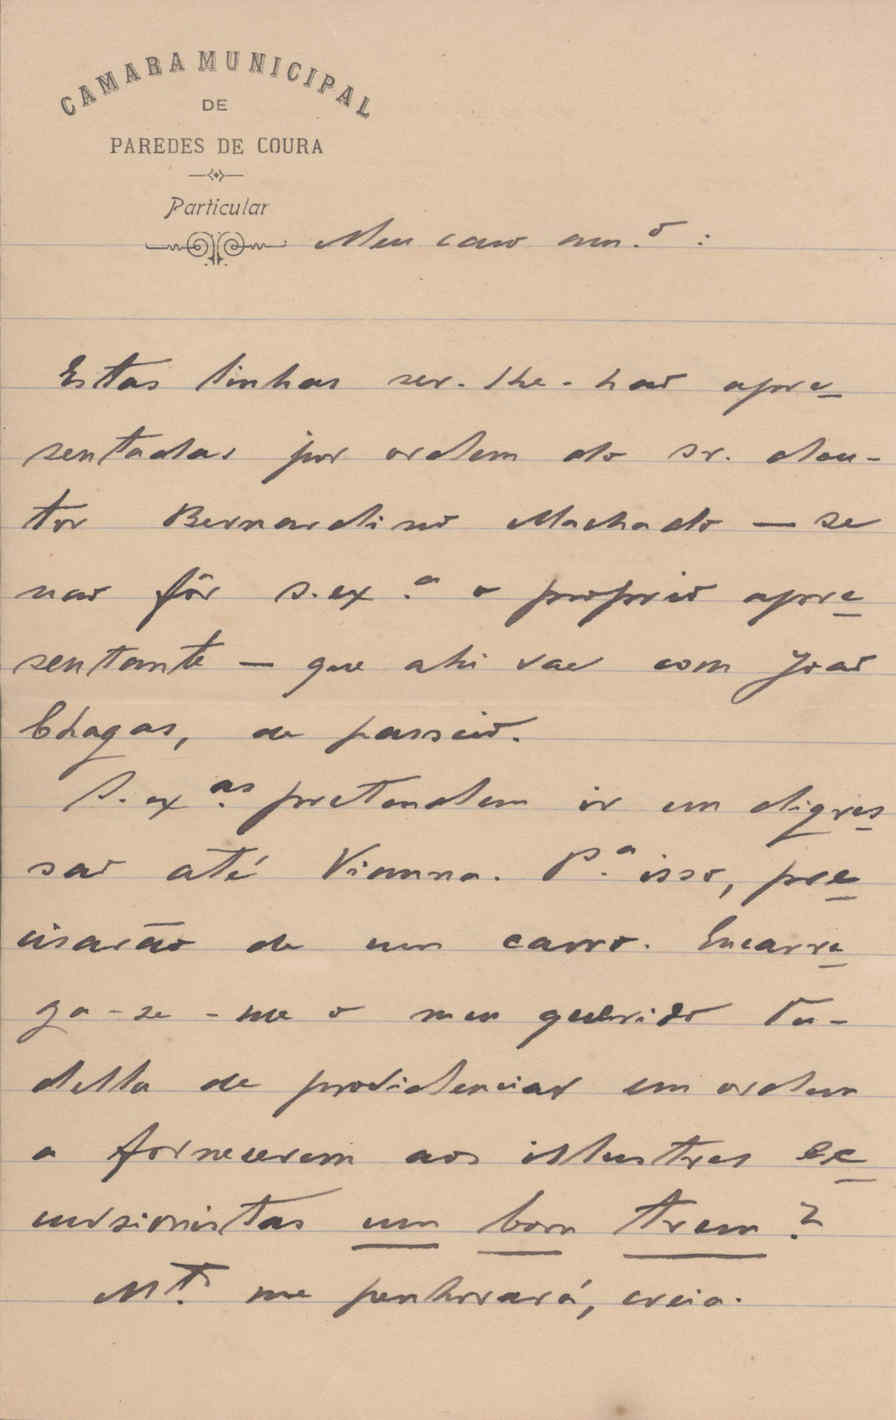 CAMARA MUNICIPAL
DE
PAREDES DE COURA
Particular
Meu caro am.o :
Estas linhas ser-lhe-hão apre-
sentadas por ordem do sr. dou-
tor Bernardino Machado — se
não fôr s. ex.a o proprio apre-
sentante — que ahi vae com João
Chagas, de passeio.
S. ex.as pretendem ir em digres-
são até Vianna. P.a isso, pre-
cisarão de um carro. Encarre-
ga-se-me o meu querido Tu-
della de providenciar em ordem
a fornecerem aos illustres ex-
cursionistas um bom trem?
Mt.o me penhorará, creia.